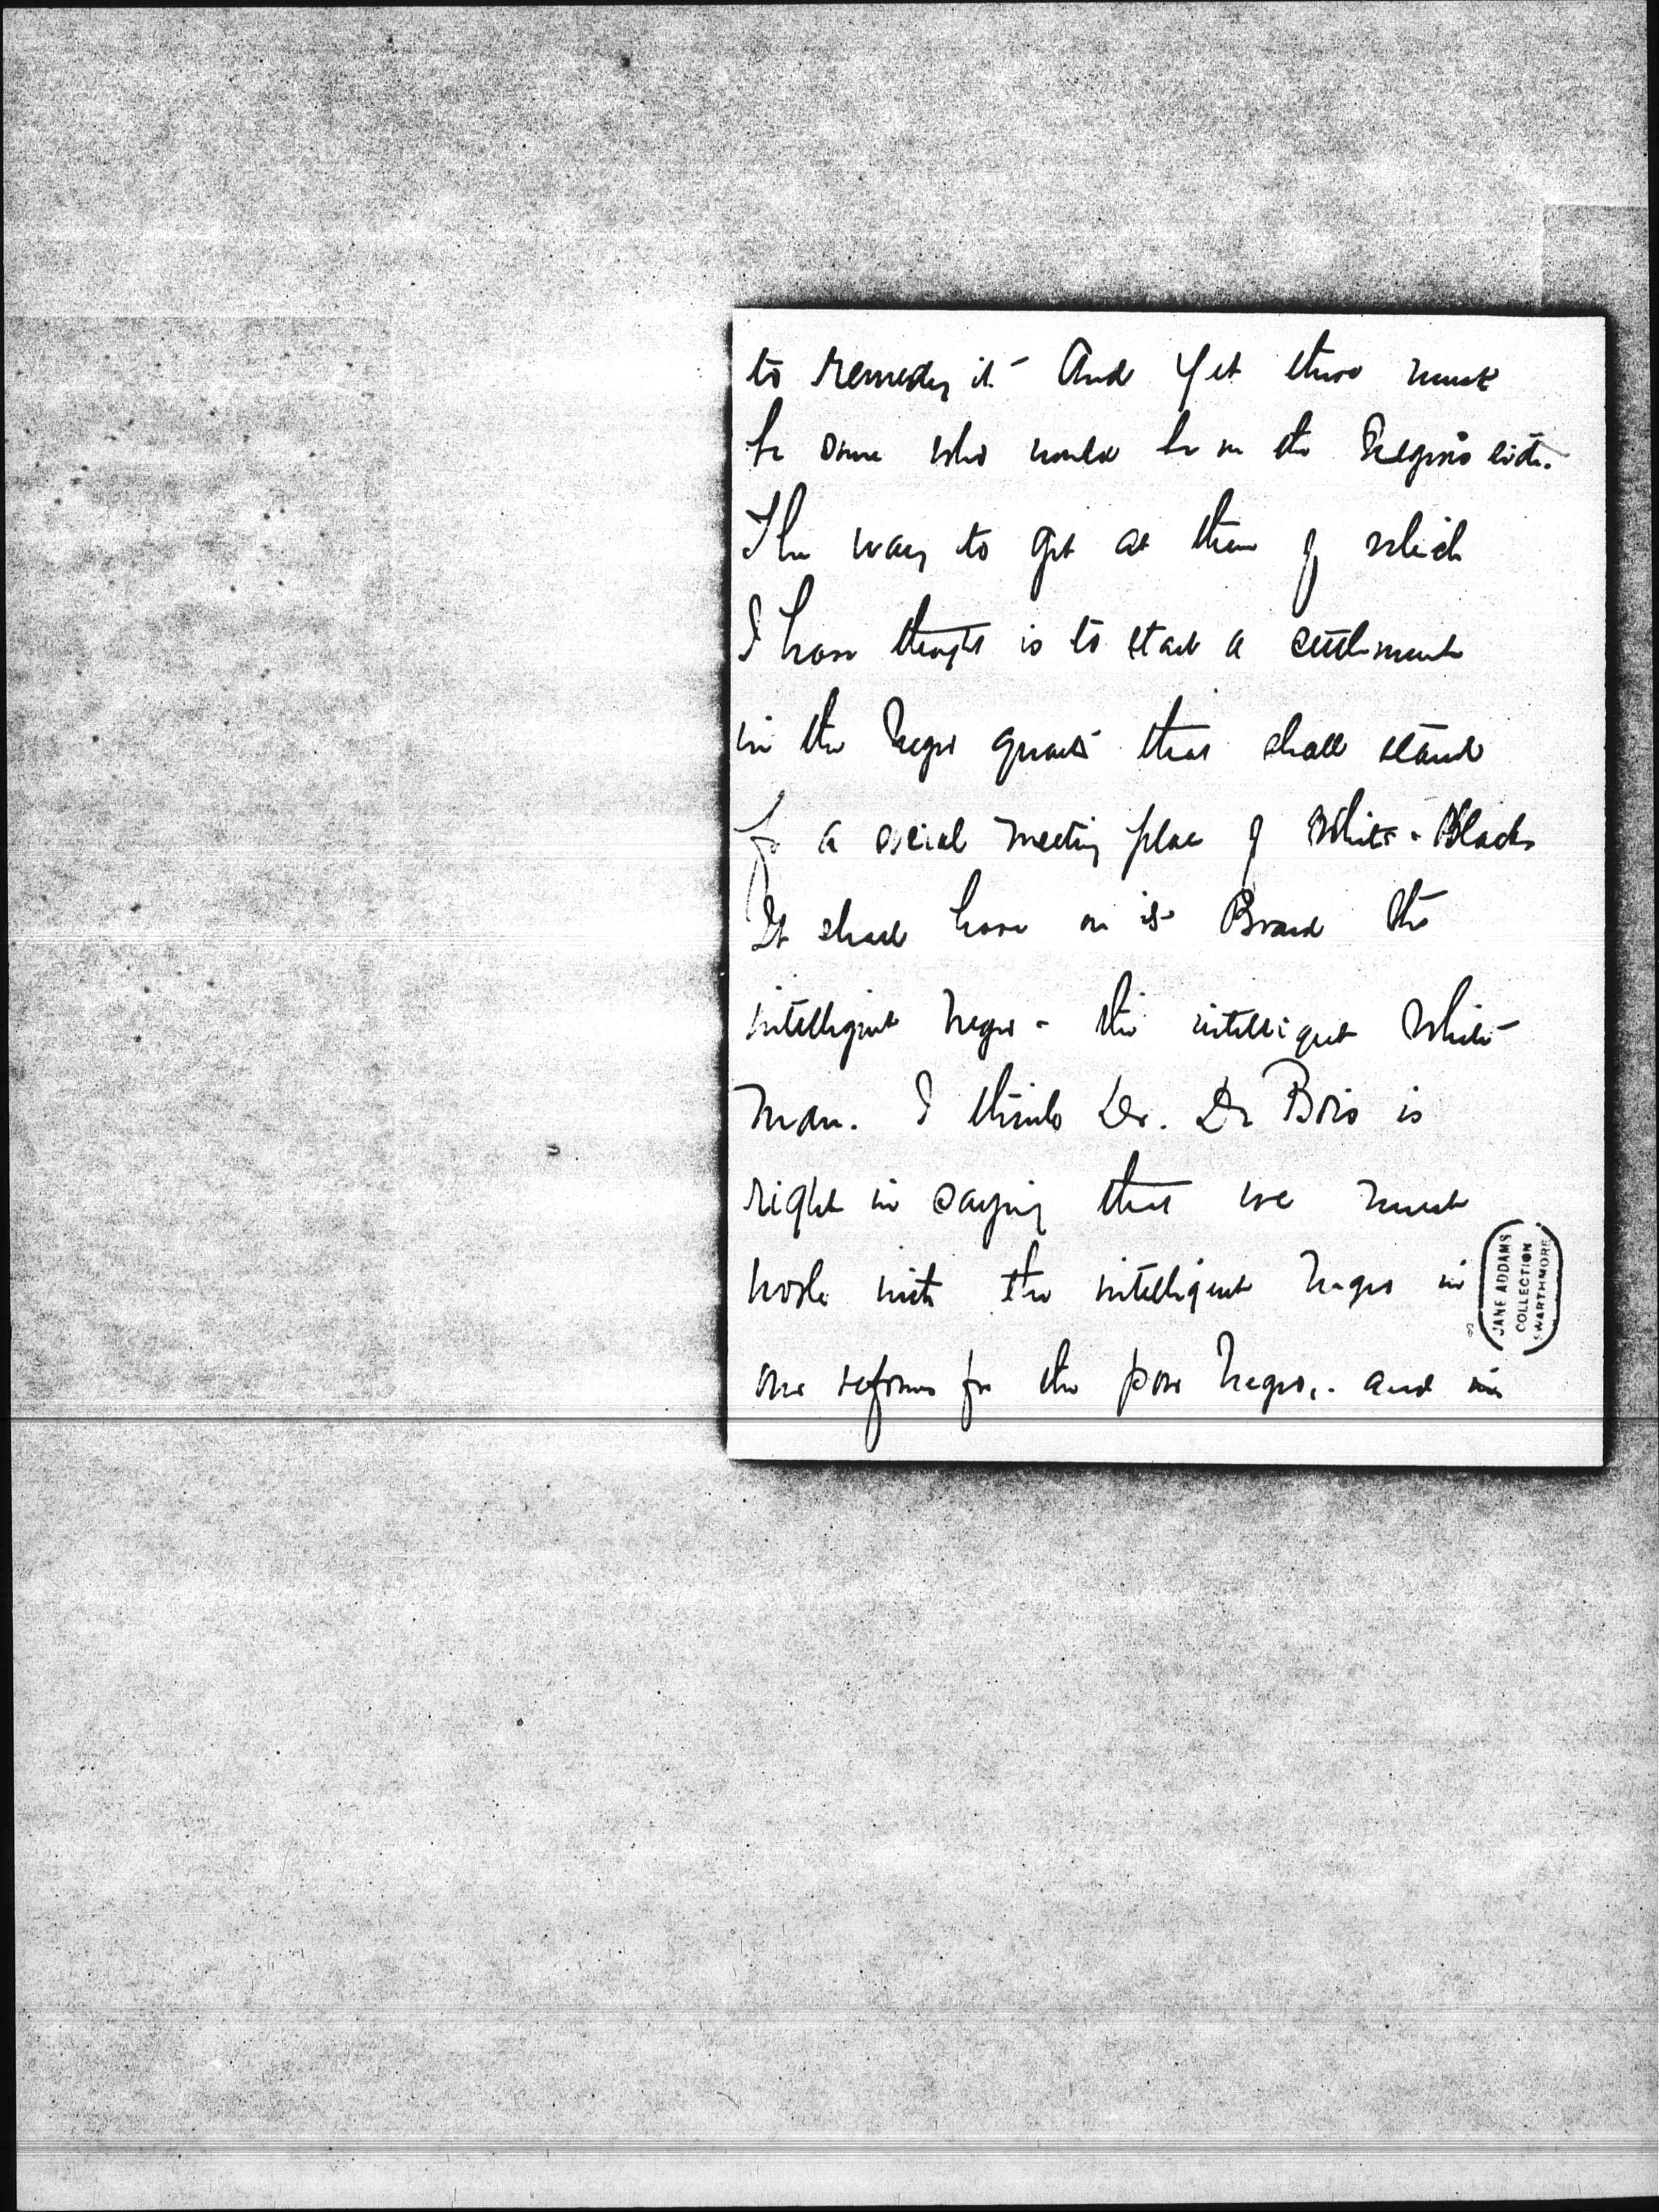 to remedy it - And yet there must
be some who would be on the Negro's side.
The way to get at them of which
I have thought is to start a settlement
in the Negro quarter that shall stand
for a social meeting place of White - Black
It shall have on its Board the
intelligent Negro - the intelligent white
man. I think Dr. Du Bois is
right in saying that we must
work with the intelligent Negro in
our reforms for the poor Negro, - and in
JANE ADDAMS
COLLECTION
SWARTHMORE